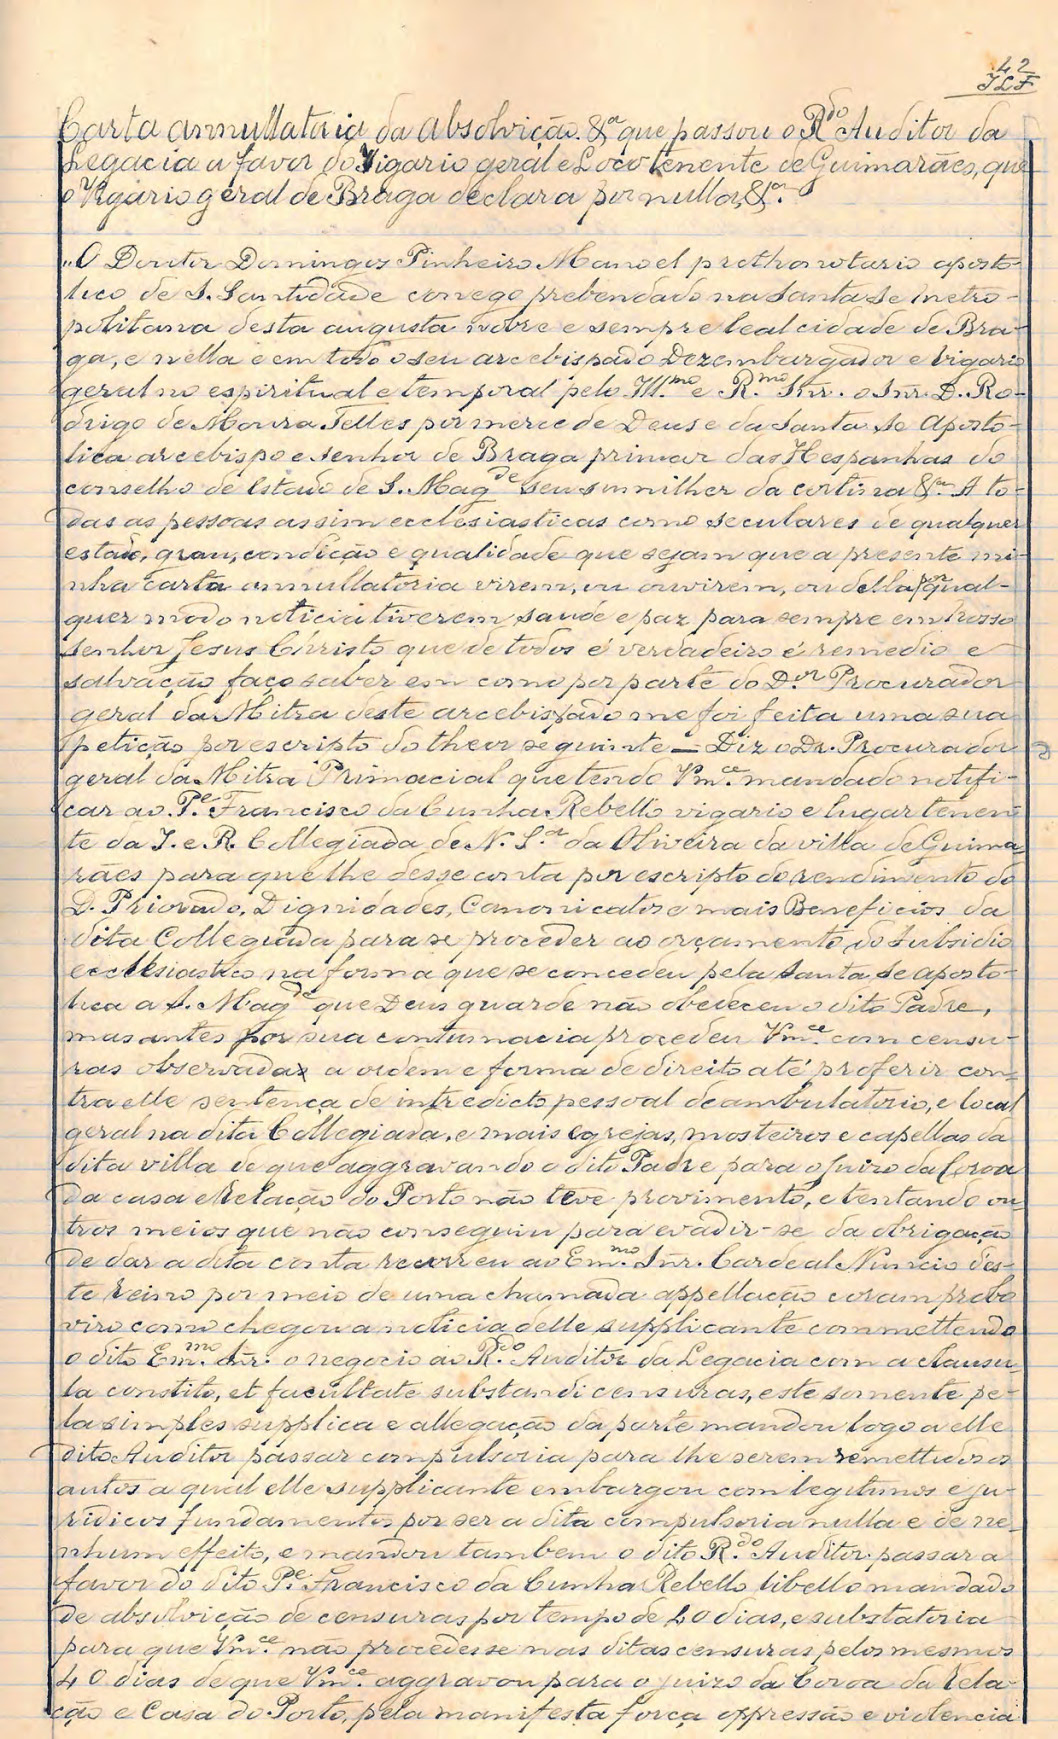 42
JLF
Carta annullatoria da absolvição &ª que passou o Rdo Auditor da
Legacia a favor do Vigario geral e Locotenente de Guimarães, que
o Vigario geral de Braga declara por nulla, &ª.
"O Doutor Domingos Pinheiro Manoel prothonotario aposto-
lico de S. Santidade conego prebendado na Santa Se metro-
politana desta augusta nobre e sempre leal cidade de Bra-
ga, e nella e em todo o seu arcebispado Dezembargador e vigario
geral no espiritual e temporal pelo Ill.mo e R.mo Snr. o Snr. D. Ro-
drigo de Moura Telles por merce de Deus e da Santa Se Aposto-
lica arcebispo e senhor de Braga primaz das Hespanhas do
conselho de Estado de S. Magde seu sumilher da cortina &ª. A to-
das as pessoas assim ecclesiasticas como seculares de qualquer
estado, grau, condição e qualidade que sejam que a presente mi-
nha carta annullatoria virem, ou ouvirem, ou della por qual-
quer modo noticia tiverem saude e paz para sempre em Nosso
Senhor Jesus Christo que de todos é verdadeiro é remedio e
salvação faço saber em como por parte do D.or Procurador
geral da Mitra deste arcebispado me foi feita uma sua
petição por escripto do theor seguinte — Diz o Dr. Procurador
geral da Mitra Primacial que tendo Vm.ce mandado notifi-
car ao P.e Francisco da Cunha Rebello vigario e lugar tenen-
te da I. e R. Collegiada de N. S.ra da Oliveira da villa de Guima
rães para que lhe desse conta por escripto do rendimento do
D. Priorado, Dignidades, Canonicatos e mais Beneficios da
dita Collegiada para se proceder ao orçamento do subsidio
ecclesiastico na forma que se concedeu pela Santa Se aposto-
lica a S. Magde que Deus guarde não obedeceu o dito Padre,
mas antes por sua contumacia procedeu Vm.ce com censu-
ras observadas a ordem e forma de direito até proferir con-
tra elle sentença de intredicto pessoal deambulatorio, e local
geral na dita Collegiada, e mais egrejas, mosteiros e capellas da
dita villa de que aggravando o dito Padre para o Juizo da Coroa
da casa e Relação do Porto não teve provimento, e tentando ou
tros meios que não conseguiu para evadir-se da obrigação
de dar a dita conta recorreu ao Em.mo Snr. Cardeal Nuncio des-
te reino por meio de uma chamada appellação coram probo
viro como chegou a noticia delle supplicante commettendo
o dito Em.mo Snr. o negocio ao R.do Auditor da Legacia com a clausu
la constito, et facultate substandi censuras, este somente pe-
la simples supplica e allegação da parte mandou logo a elle
dito Auditor passar compulsoria para lhe serem remettidos os
autos a qual elle supplicante embargou com legitimos e ju-
ridicos fundamentos por ser a dita compulsoria nulla e de ne-
nhum effeito, e mandou tambem o dito R.do Auditor passar a
favor do dito P.e Francisco da Cunha Rebello libello mandado
de absolvição de censuras por tempo de 40 dias, e substatoria
para que Vm.ce não procedesse nas ditas censuras pelos mesmos
40 dias de que Vm.ce aggravou para o juizo da Coroa da Rela
ção e Casa do Porto, pela manifesta força oppressão e violencia